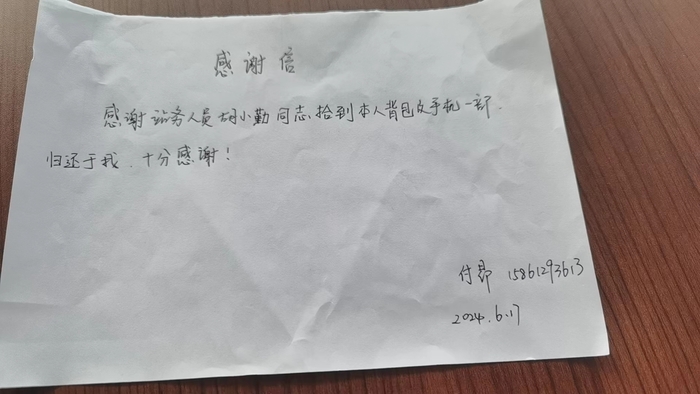 感谢信
感谢站务人员胡小勤同志拾到本人背包及手机一部.
归还于我.十分感谢!
付昂 15861293613
2024.6.17